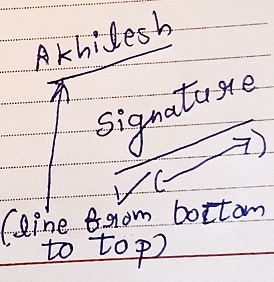 Akhilesh
Signature
(line from bottom
to top)